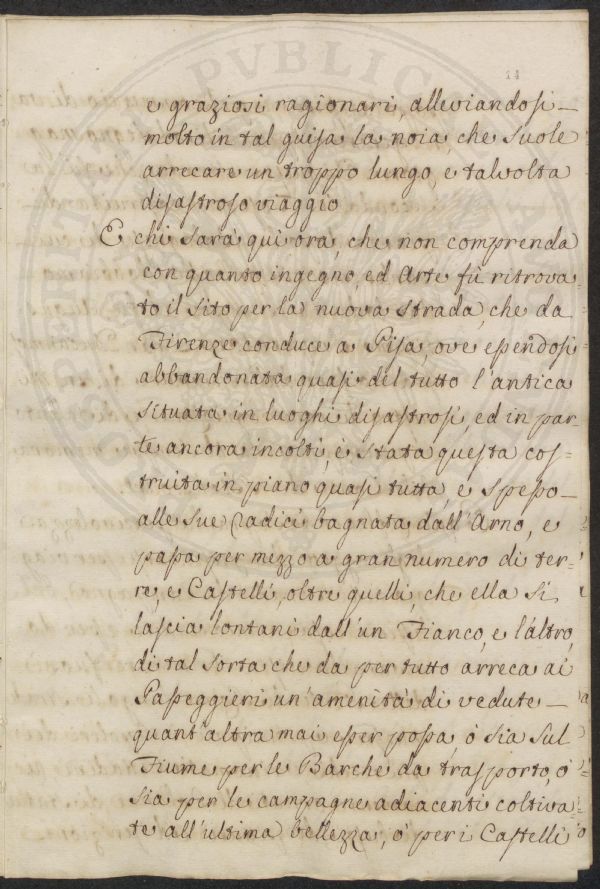 14
e graziosi ragionari, alleviandosi
molto in tal guisa la noia, che suole
arrecare un troppo lungo, e talvolta
disastroso viaggio
E chi sarà quì ora, che non comprenda
con quanto ingegno, ed Arte fù ritrova-
to il sito per la nuova strada, che da
Firenze conduce a Pisa, ove essendosi
abbandonata quasi del tutto l'antica
situata in luoghi disastrosi, ed in par-
te ancora incolti, è stata questa cos-
truita in piano quasi tutta, e spesso
alle sue radici bagnata dall'Arno, e
passa per mezzo a gran numero di ter-
re, e Castelli, oltre quelli, che ella si
lascia lontani dall'un Fianco, e l'altro,
di tal sorta che da per tutto arreca ai
Passeggieri un'amenità di vedute
quant'altra mai esser possa ò sia sul
Fiume per le Barche da trasporto, ò
sia per le campagne adiacenti coltiva-
te all'ultima bellezza, ò per i Castelli